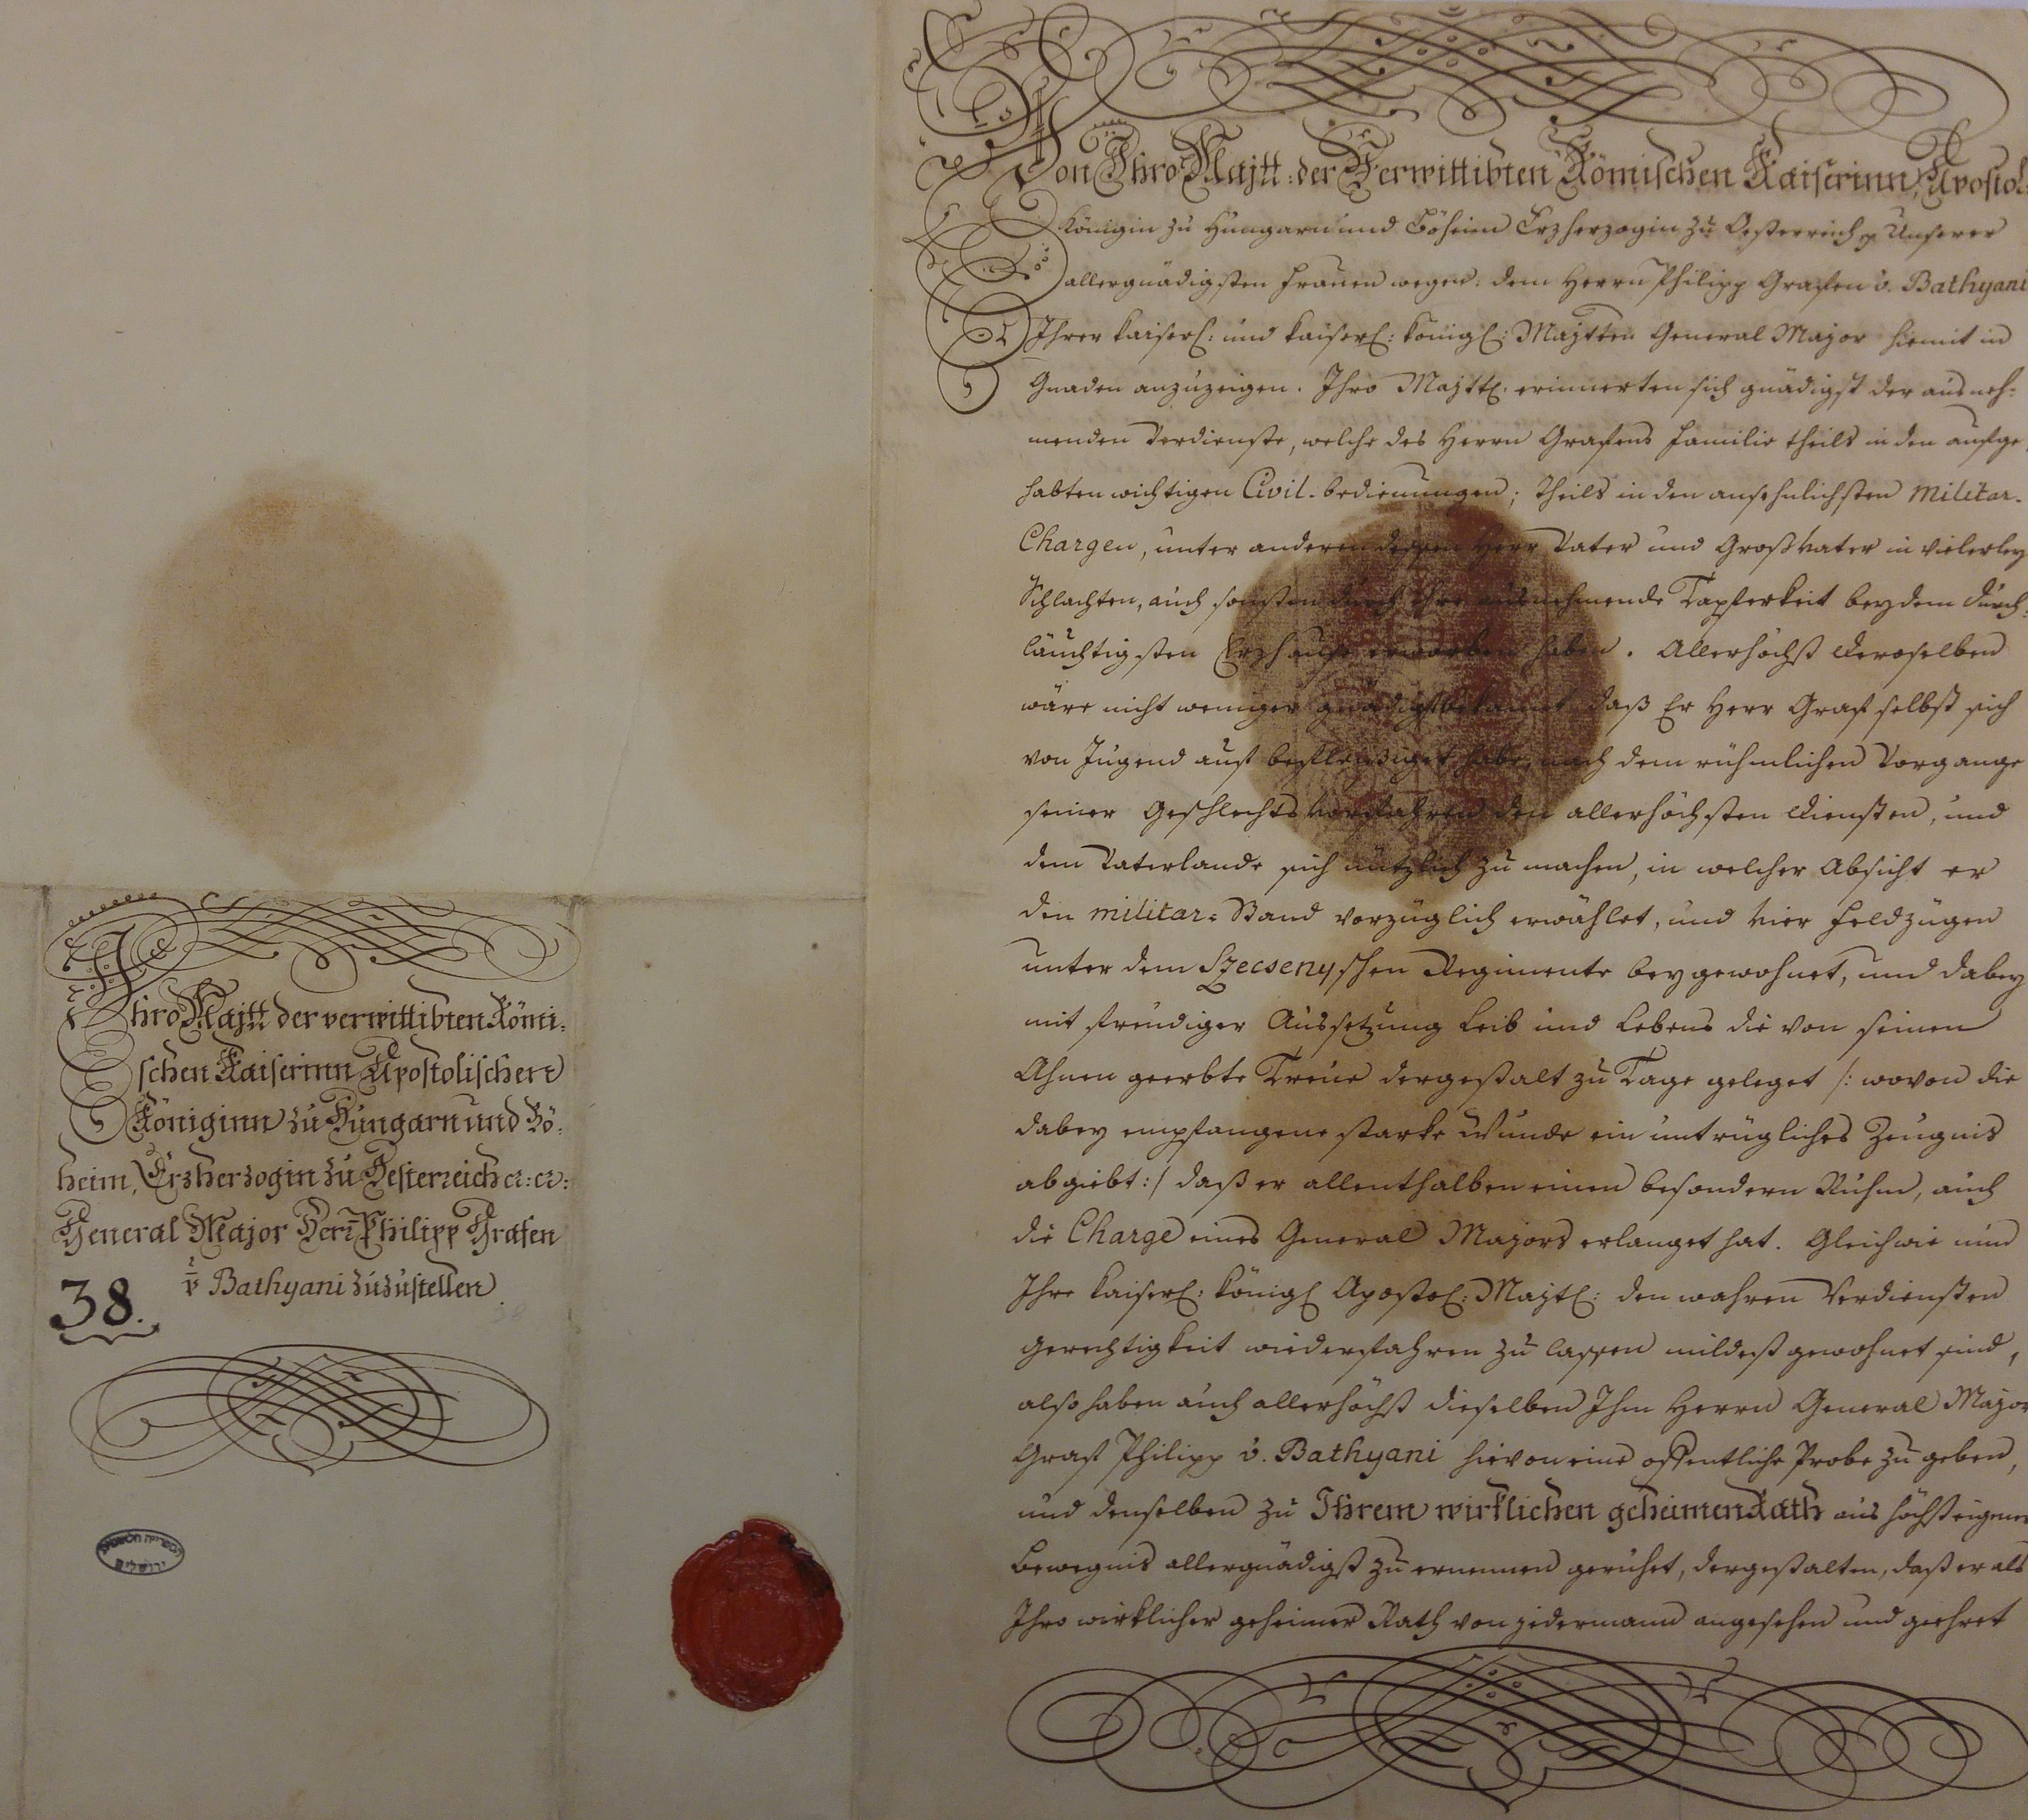 Ihro Majtt der verwittibten Römi-
schen Kaiserinn Apostolischen
Königinn zu Hungarn und Bö-
heim, Erzherzogin zu Oesterreich cz: cz:
General Major Herr Philipp Grafen
v Bathyani zuzustellen
38.
הספריה הלאומית
ירושלים
Von Ihro Majtt: der Verwittibten Römischen Kaiserinn, Apostol:
Königin zu Hungarn und Böheim Erzherzogin zu Oesterreich Unserer
allergnädigsten Frauen wegen: dem Herrn Philipp Grafen v. Bathyani
Ihrer Kaiserl: und Kaiserl: Königl: Majtten General Major hiemit in
Gnaden anzuzeigen. Ihro Majttl: erinnerten sich gnädigst der ausneh-
menden Verdienste, welche des Herrn Grafens Familie theils in den aufge-
habten wichtigen Civil-bedienungen; theils in den ansehnlichsten Militar-
Chargen, unter anderen dessen Herr Vater und Großvater in vielerley
Schlachten, auch sonsten durch ihre ausnehmende Tapferkeit bey dem Durch-
läuchtigsten Erzhause erworben haben. Allerhöchst deroselben
wäre nicht weniger gnädigst bekannt daß Er Herr Graf selbst sich
von Jugend auf beflei​ßiget habe, nach dem rühmlichen Vorgange
seiner Geschlechts Vorfahren den allerhöchsten diensten, und
dem Vaterlande sich nützlich zu machen, in welcher Absicht er
den militar-Stand vorzüglich erwählet, und vier Feldzügen
unter dem Szecsenyschen Regimente beygewohnet, und dabey
mit freudiger Aussetzung Leib und Lebens die von seinen
Ahnen geerbte Treue dergestalt zu Tage geleget /: wovon die
dabey empfangene starke Wunde ein untrügliches Zeugnis
abgiebt :/ daß er allenthalben einen besondern Ruhm, auch
die Charge eines General Majors erlanget hat. Gleichwie nun
Ihre Kaiserl: Königl Apostol: Majtl: den wahren Verdiensten
gerechtigkeit wiederfahren zu lassen mildest gewohnet sind,
also haben auch allerhöchst dieselben Ihm Herrn General Major
Graf Philipp v. Bathyani hievon eine offentliche Probe zu geben,
und denselben zu Ihrem wirklichen geheimen Rath aus höchsteigener
bewegnis allergnädigst zu ernennen geruhet, dergestalten, daß er als
Ihro wirklicher geheimer Rath von jedermann angesehen und geehret